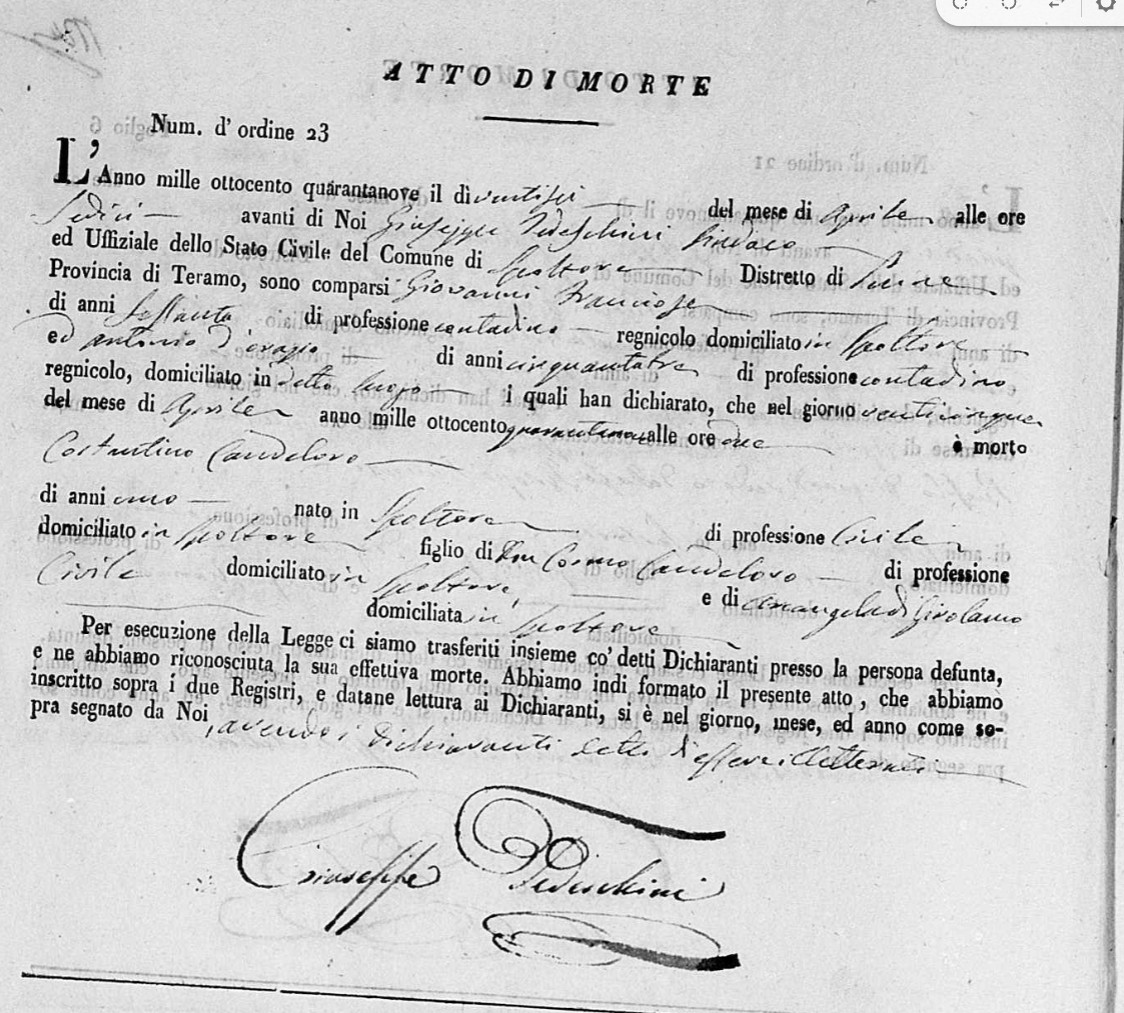 ATTO DI MORTE
Num. d' ordine 23
L'Anno mille ottocento quarantanove il dì ventisei del mese di Aprile alle ore
Sedici avanti di Noi Giuseppe Tedeschini Sindaco
ed Uffiziale dello Stato Civile del Comune di Spoltore Distretto di Penne
Provincia di Teramo, sono comparsi Giovanni Franciosa
di anni Sessanta di professione contadino regnicolo domiciliato in Spoltore
ed Antonio d'orazio di anni cinquantatre di professione contadino
regnicolo, domiciliato in detto luogo i quali han dichiarato, che nel giorno venticinque
del mese di Aprile anno mille ottocento quarantanove alle ore due è morto
Costantino Candeloro
di anni uno nato in Spoltore di professione Civile
domiciliato in Spoltore figlio di Don Cosmo Candeloro di professione
Civile domiciliato in Spoltore, e di Arcangela di Girolamo
domiciliata in Spoltore
Per esecuzione della Legge ci siamo trasferiti insieme co' detti Dichiaranti presso la persona defunta,
e ne abbiamo riconosciuta la sua effettiva morte. Abbiamo indi formato il presente atto, che abbiamo
inscritto sopra i due Registri, e datane lettura ai Dichiaranti, si è nel giorno, mese, ed anno come so-
pra segnato da Noi, avendo i dichiaranti detto d'essere illetterati
Giuseppe Tedeschini